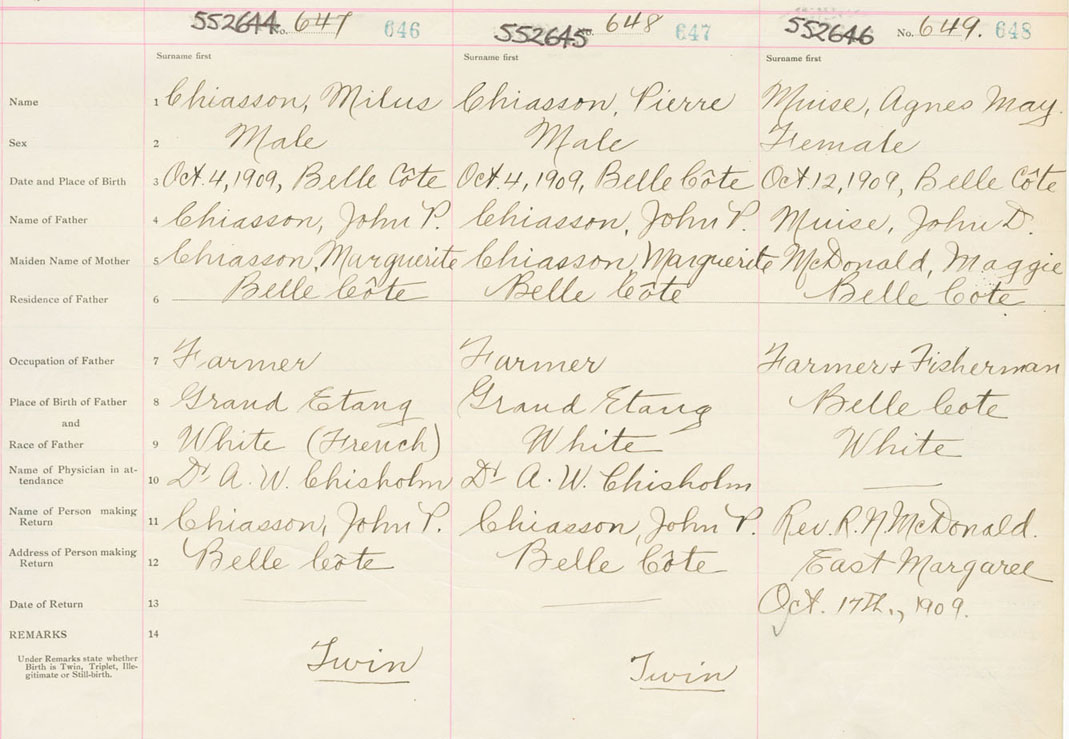 552644 No. 647 646 552645 No. 648 647 552646 No. 649. 648
Surname first Surname first Surname first
Name 1 Chiasson, Milus Chiasson, Pierre Muise, Agnes May.
Sex 2 Male Male Female
Date and Place of Birth 3 Oct. 4, 1909, Belle Côte Oct. 4, 1909, Belle Côte Oct. 12, 1909, Belle Côte
Name of Father 4 Chiasson, John P. Chiasson, John P. Muise, John D.
Maiden Name of Mother 5 Chiasson, Marguerite Chiasson, Marguerite McDonald, Maggie
Residence of Father 6 Belle Côte Belle Côte Belle Côte
Occupation of Father 7 Farmer Farmer Farmer + Fisherman
Place of Birth of Father 8 Grand Etang Grand Etang Belle Cote
and
Race of Father 9 White (French) White White
Name of Physician in at-
tendance 10 Dr A. W. Chisholm Dr A. W. Chisholm
Name of Person making
Return 11 Chiasson, John P. Chiasson, John P. Rev. R. N. McDonald.
Address of Person making
Return 12 Belle Côte Belle Côte East Margaree
Date of Return 13 Oct. 17th., 1909.
REMARKS 14
Under Remarks state whether
Birth is Twin, Triplet, Ille-
gitimate or Still-birth.
Twin Twin